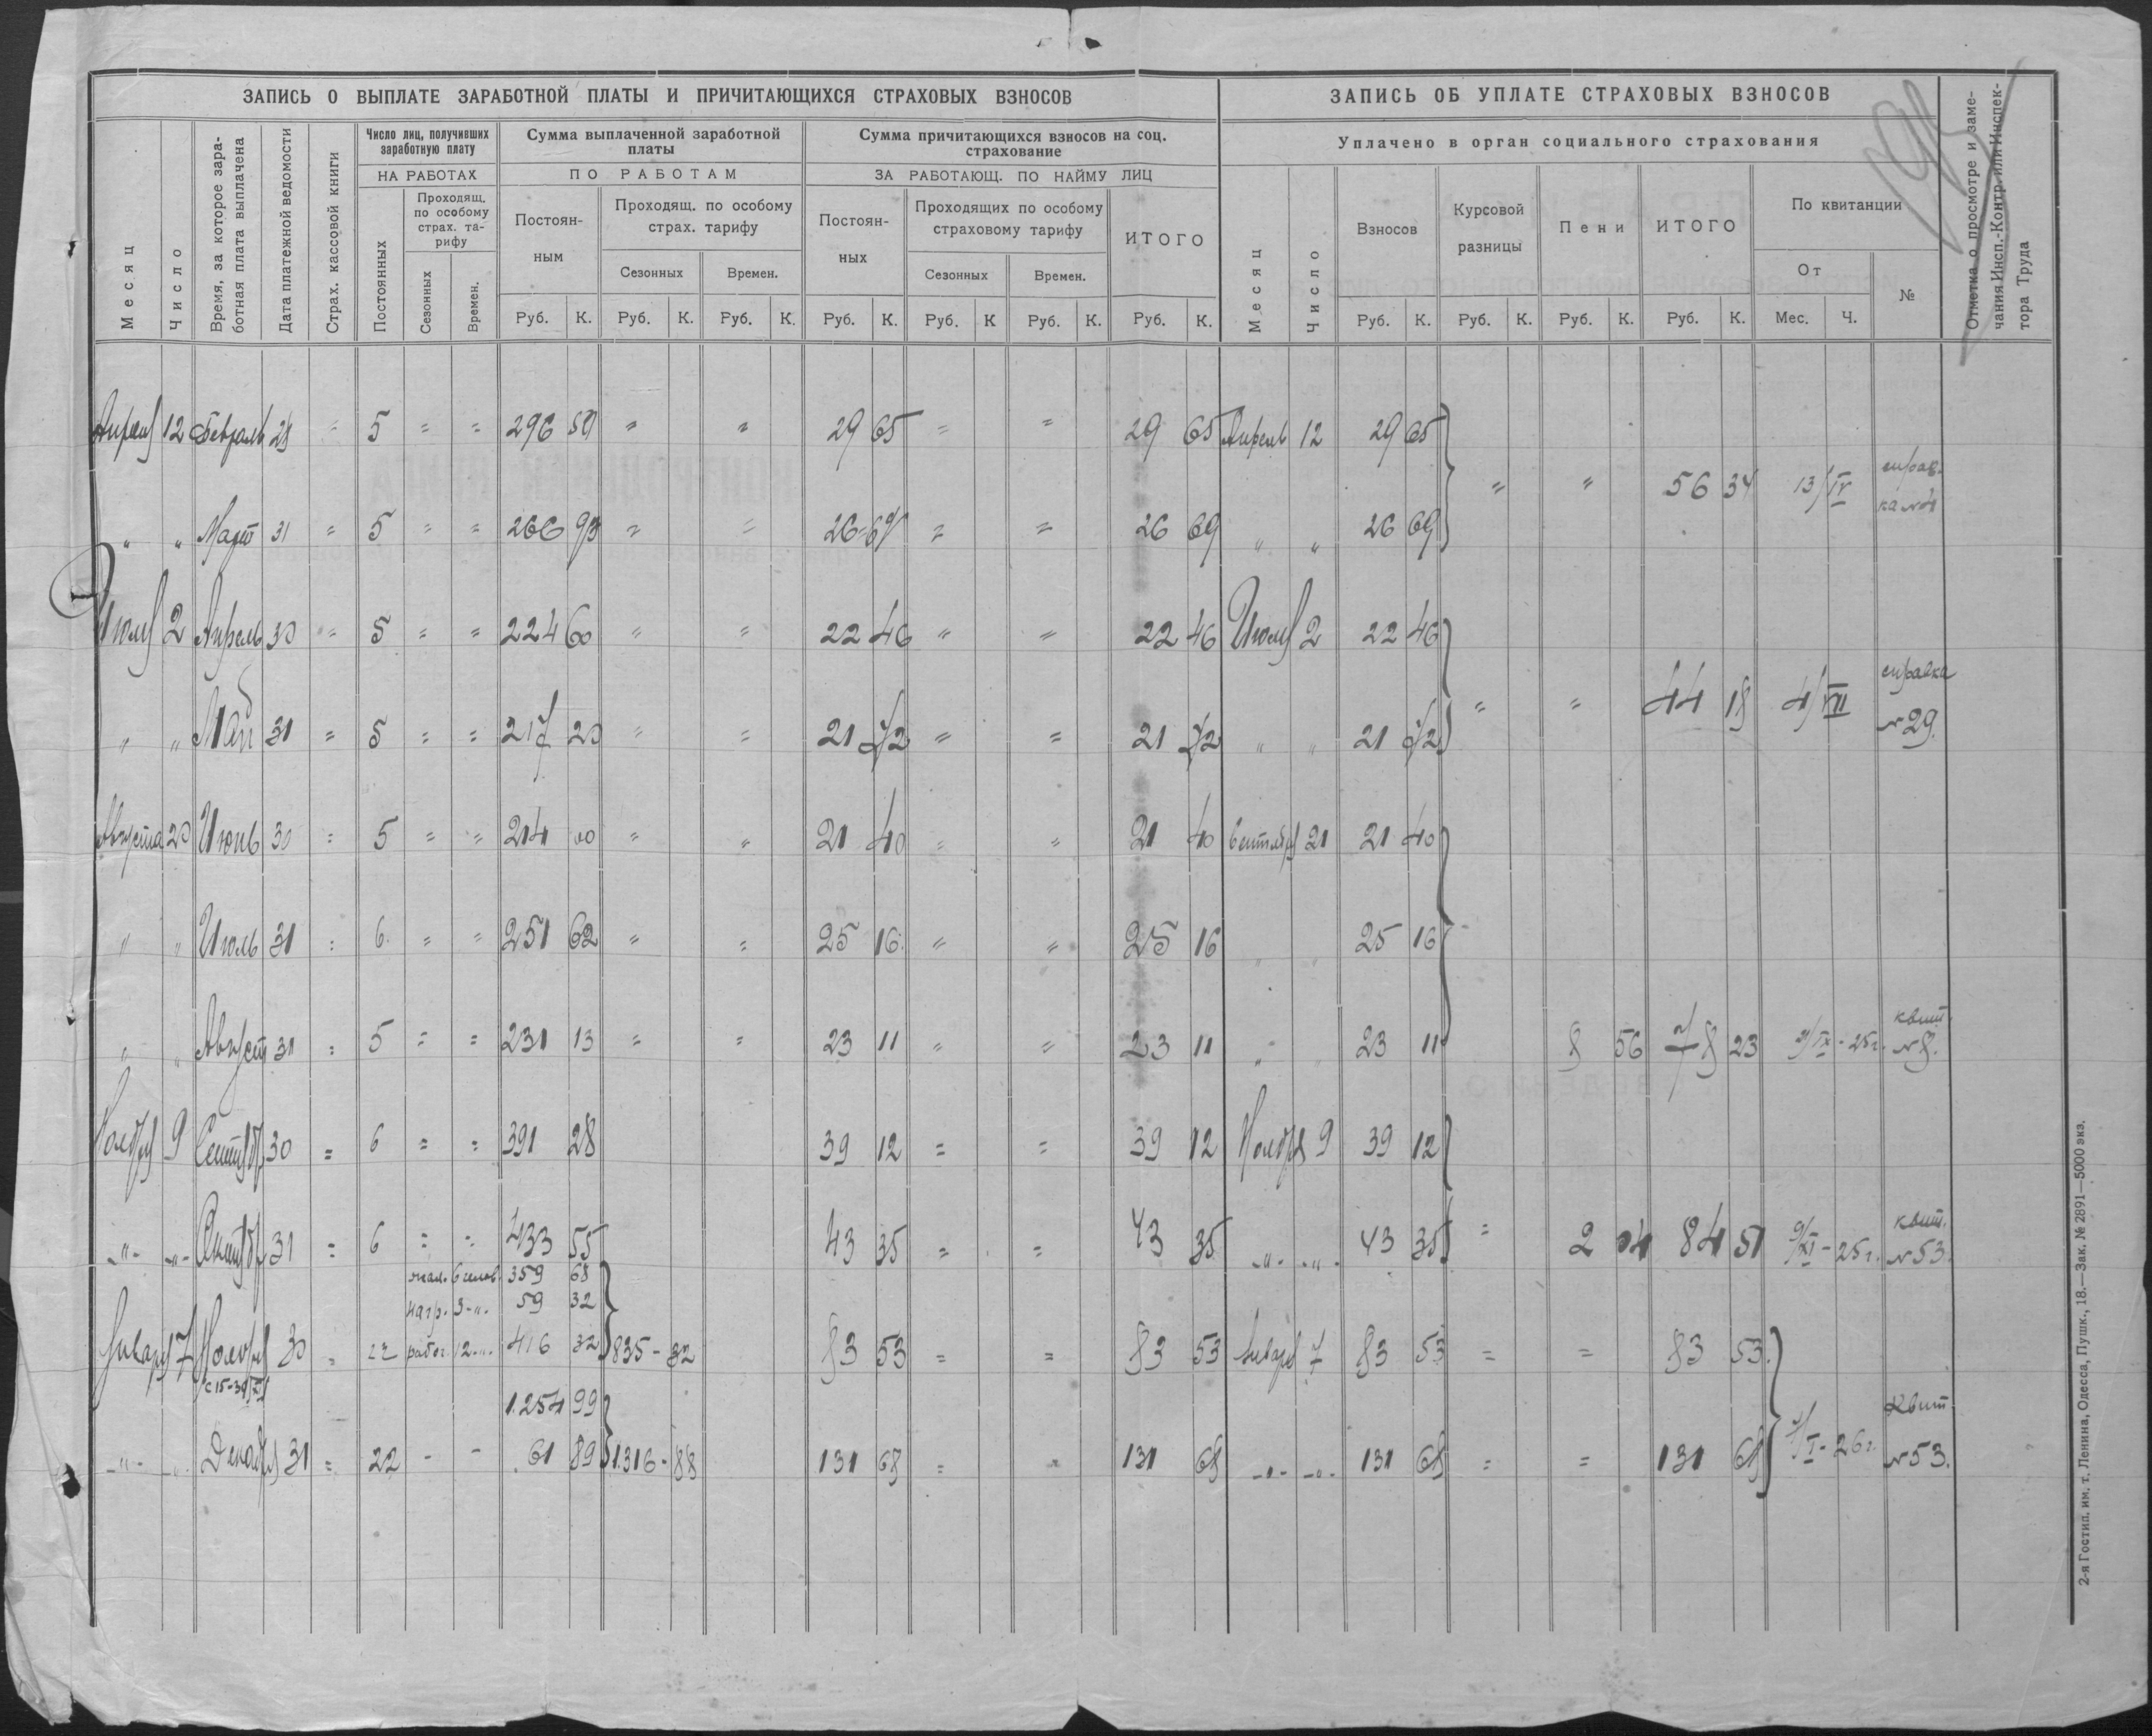 ЗАПИСЬ О ВЫПЛАТЕ ЗАРАБОТНОЙ ПЛАТЫ И ПРИЧИТАЮЩИХСЯ СТРАХОВЫХ ВЗНОСОВ
ЗАПИСЬ ОБ УПЛАТЕ СТРАХОВЫХ ВЗНОСОВ
Отметка о просмотре и заме-
чания Инсп.-Контр. или Инспек-
тора Труда
Месяц
Число
Время, за которое зара-
ботная плата выплачена
Дата платежной ведомости
Страх. кассовой книги
Число лиц, получивших
заработную плату
НА РАБОТАХ
Постоянных
Проходящ.
по особому
страх. та-
рифу
Сезонных
Времен.
Сумма выплаченной заработной
платы
ПО РАБОТАМ
Постоян-
ным
Проходящ. по особому
страх. тарифу
Сезонных Времен.
Руб. К. Руб. К. Руб. К.
Сумма причитающихся взносов на соц.
страхование
ЗА РАБОТАЮЩ. ПО НАЙМУ ЛИЦ
Постоян-
ных
Проходящих по особому
страховому тарифу
Сезонных Времен.
ИТОГО
Руб. К. Руб. К Руб. К. Руб. К.
Уплачено в орган социального страхования
Месяц
Число
Взносов
Курсовой
разницы
Пени
ИТОГО
По квитанции
От
№
Руб. К. Руб. К. Руб. К. Руб. К. Мес. Ч.
Апрель 12 Февраль 28 = 5 = = 296 50 = = 29 65 = = 29 65 Апрель 12 29 65
" " 56 34 13/IV справ-
ка №4
" " Март 31 = 5 = = 266 93 = = 26-69 = = 26 69 " " 26 69
Июль 2 Апрель 30 = 5 = = 224 60 " " 22 46 " " 22 46 Июль 2 22 46
" " 44 18 4/VII справка
№29.
" " Май 31 = 5 = = 217 20 " = 21 72 " = 21 72 " " 21 72
Августа 20 Июнь 30 = 5 " " 214 00 " " 21 40 = " 21 40 Сентября 21 21 40
" " Июль 31 : 6. " " 251 62 " = 25 16 " " 25 16 " " 25 16
" " Август 31 : 5 = = 231 13 = = 23 11 " = 23 11 " " 23 11 8 56 78 23 /IX-25г. квит.
№8.
Ноября 9 Сентябр 30 = 6 = = 391 28 39 12 = = 39 12 Ноября 9 39 12
-"- -"- Октябр 31 = 6 = = 433 55 43 35 = = 43 35 -"- -"- 43 35 = 2 04 84 51 9/XI-25г. квит.
№53.
6 359 68
3-"- 59 32
Январь 7 Ноябрь 30 = 22 рабоч. 12-"- 416 32 835-32 83 53 = = 83 53 Январь 7 83 53 = = 83 53
с 15-30/XI
1.254 99
-"- -"- Декабрь 31 = 22 - - 61 89 1.316-88 131 68 = = 131 68 -"- -"- 131 68 = = 131 68 7/I-26г. Квит
№53.
2-я Гостип. им. т. Ленина, Одесса, Пушк., 18.—Зак. № 2891—5000 экз.